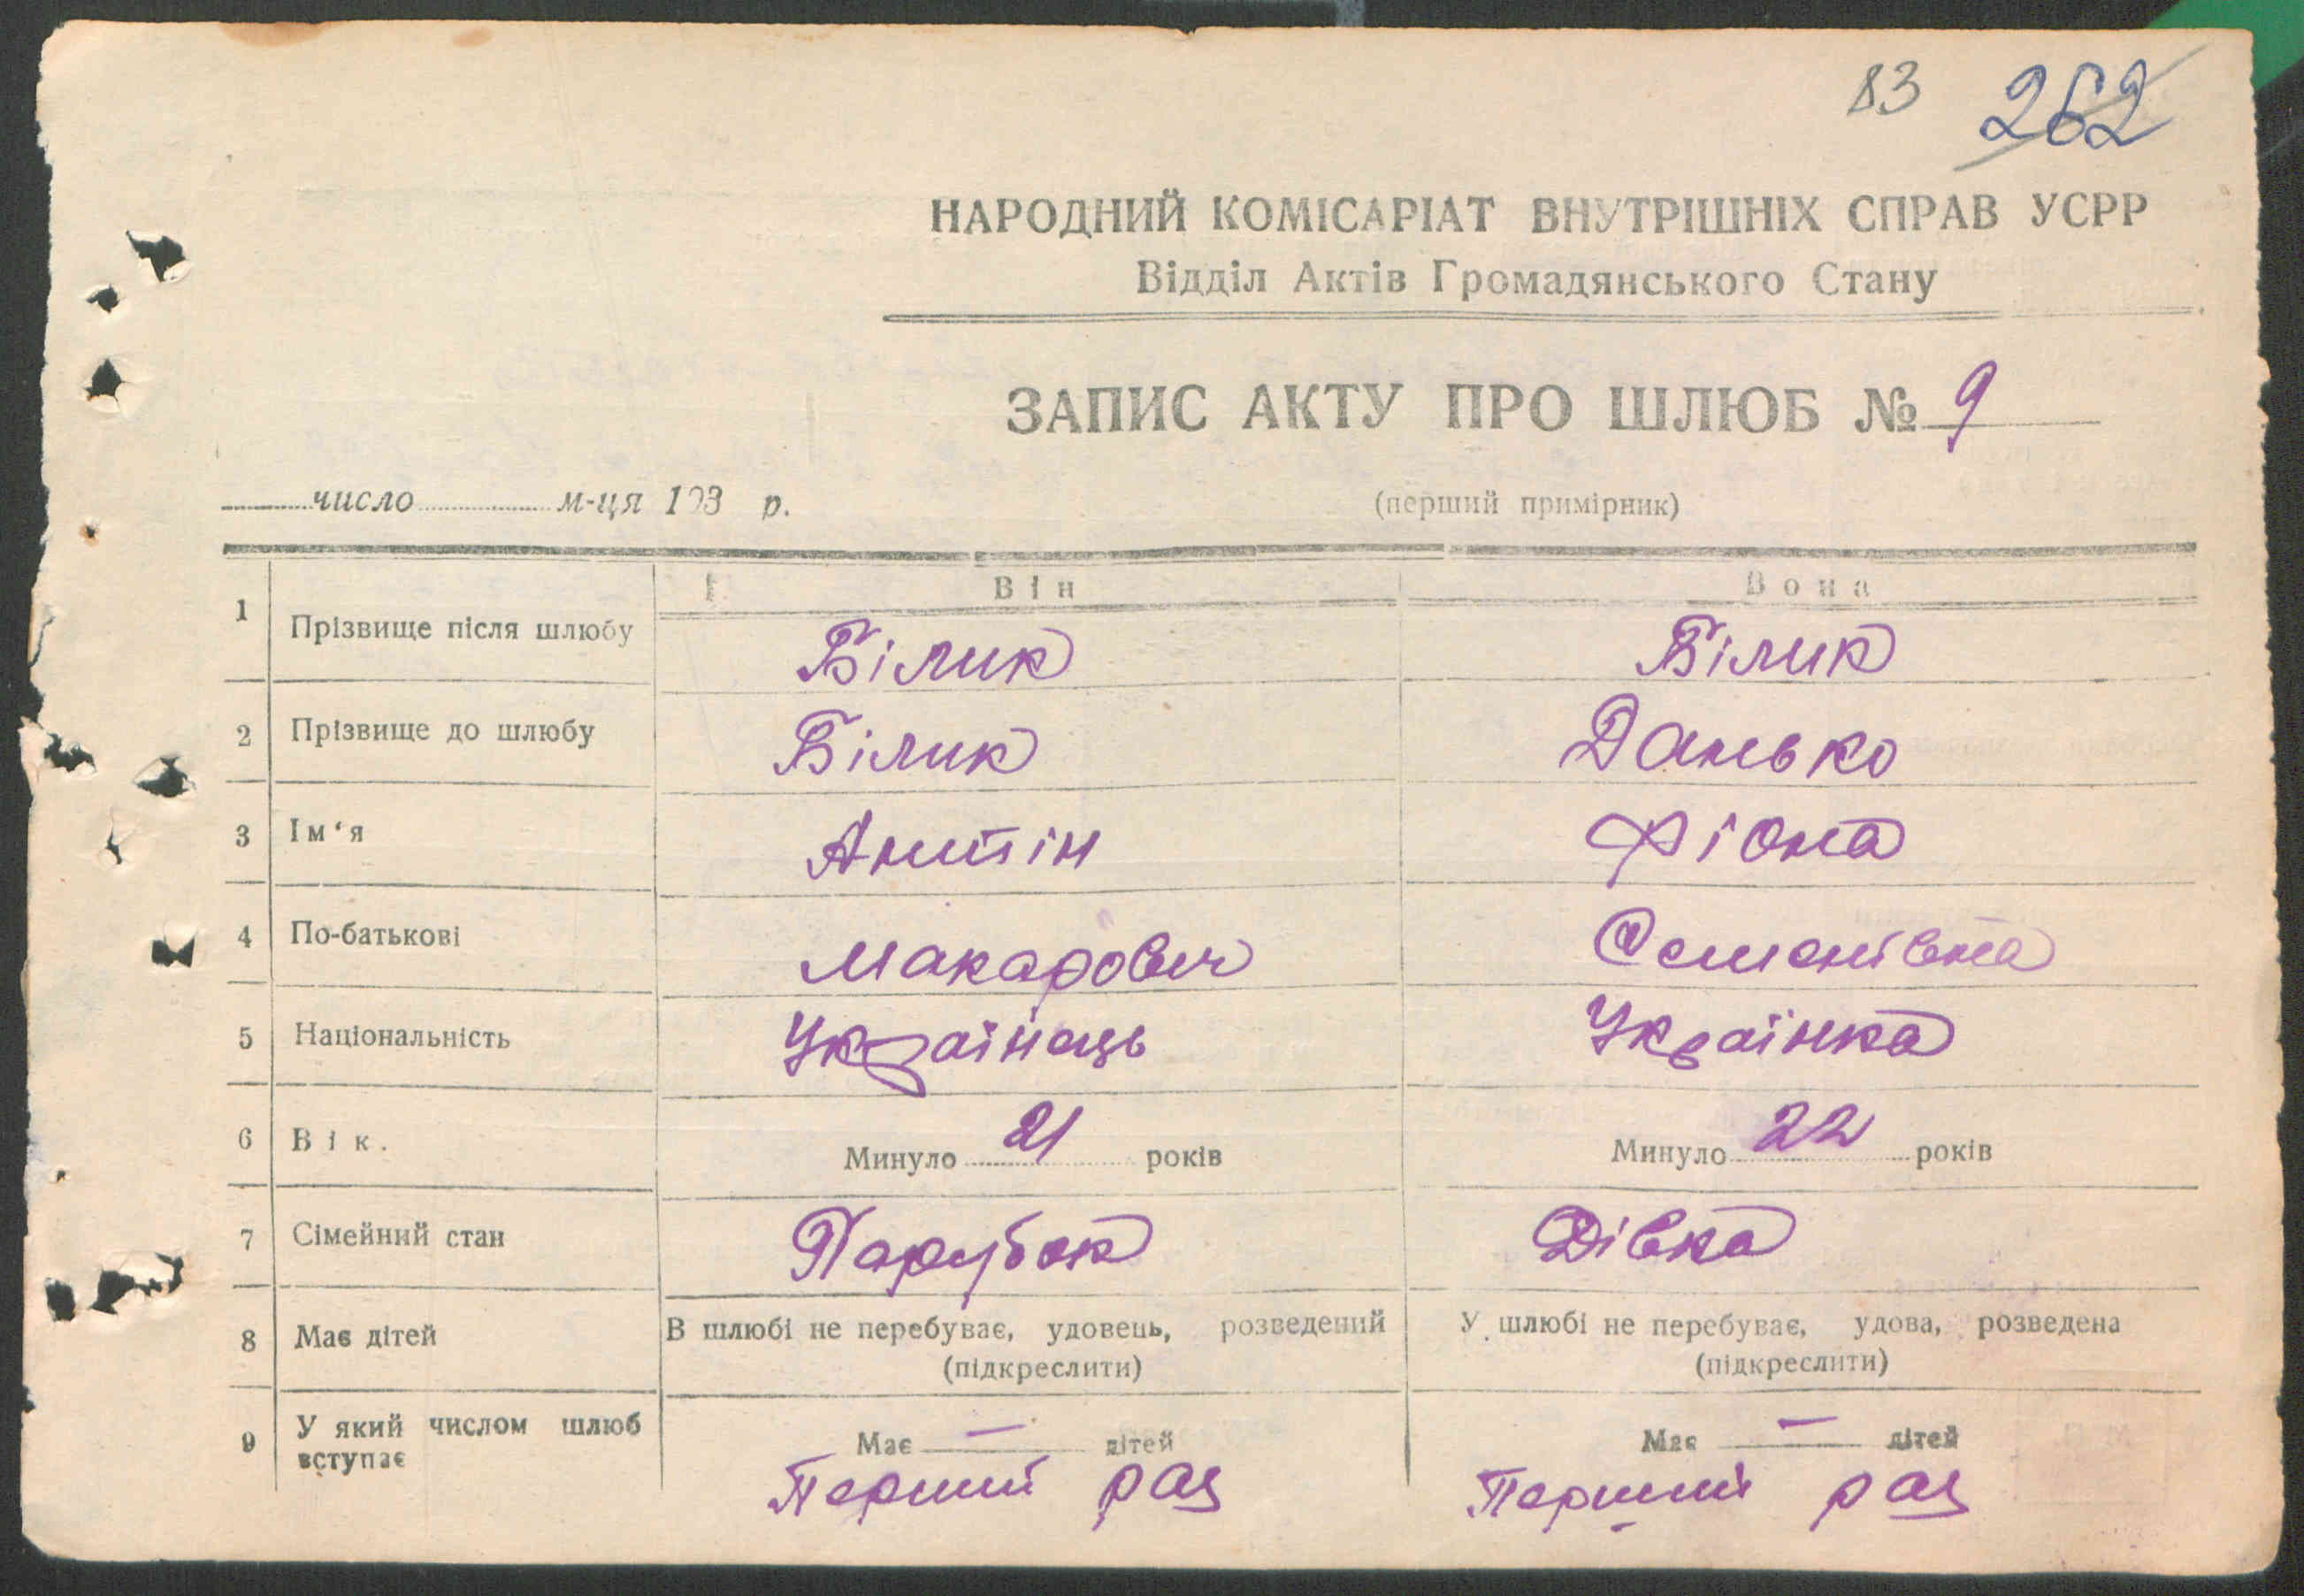 83 262
НАРОДНИЙ КОМІСАРІАТ ВНУТРІШНІХ СПРАВ УСРР
Відділ Актів Громадянського Стану
ЗАПИС АКТУ ПРО ШЛЮБ № 9
число м-ця 193 р. (перший примірник)
Він Вона
1 Прізвище після шлюбу Білик Білик
2 Прізвище до шлюбу Білик Данько
3 Ім‘я Антін Фіона
4 По-батькові Макарович Семенівна
5 Національність Українець Українка
6 Вік. Минуло 21 років Минуло 22 років
7 Сімейний стан Парубок Дівка
8 Має дітей В шлюбі не перебуває, удовець, розведений У шлюбі не перебуває, удова, розведена
(підкреслити) (підкреслити)
9 У який числом шлюб вступає Має — дітей Має — дітей
Перший раз Перший раз